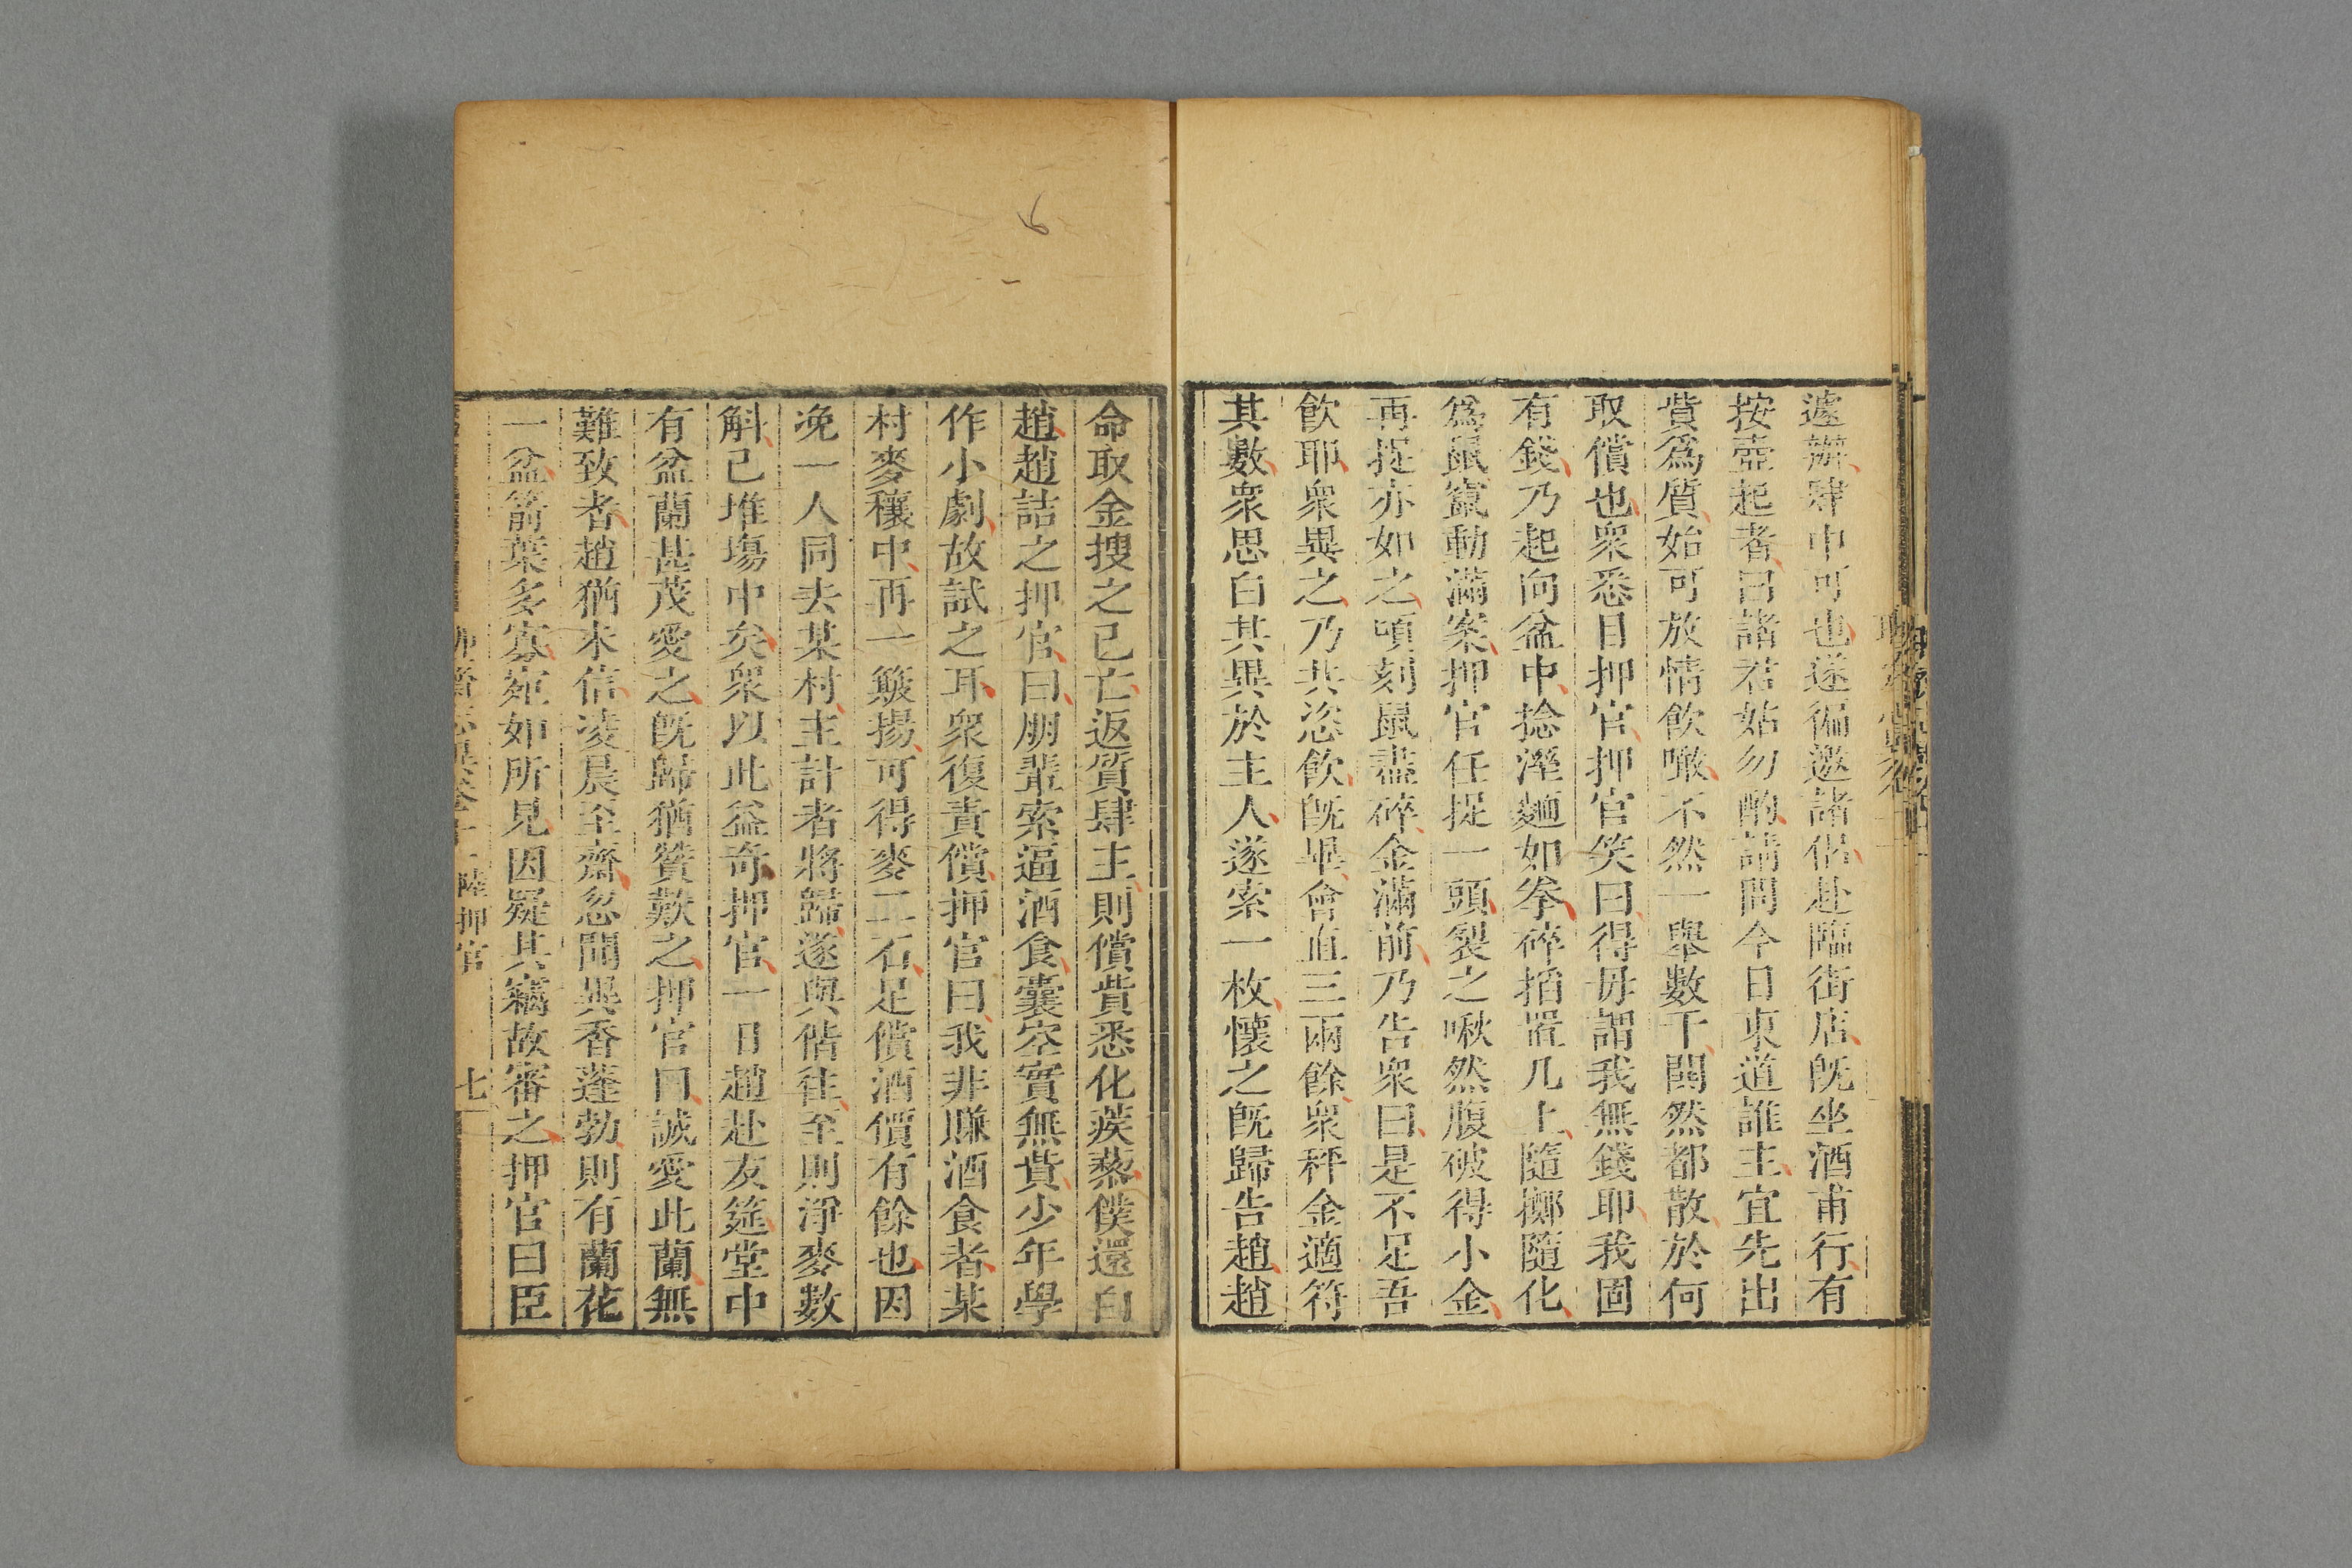 遽辦肆中可也遂徧邀諸侶赴臨街店旣坐酒甫行有
按壺起者曰諸君姑勿酌請問今日東道誰主宜先出
貲爲質始可放情飲噉不然一舉數千閧然都散於何
取償也衆悉目押官押官笑曰得毋謂我無錢耶我固
有錢乃起向盆中捻溼麵如拳碎掐置几上隨擲隨化
爲鼠竄動滿案押官任捉一頭裂之啾然腹破得小金
再捉亦如之頃刻鼠盡碎金滿前乃告衆曰是不足吾
飲耶衆異之乃共恣飲旣畢會直三兩餘衆秤金適符
其數衆思白其異於主人遂索一枚懷之旣歸告趙趙
命取金搜之已亡返質肆主則償貲悉化蒺藜僕還白
趙趙詰之押官曰朋輩索逼酒食囊空實無貲少年學
作小劇故試之耳衆復責償押官曰我非賺酒食者某
村麥穰中再一簸揚可得麥二石足償酒價有餘也因
浼一人同去某村主計者將歸遂與偕往至則淨麥數
斛已堆場中矣衆以此益奇押官一日趙赴友筵堂中
有盆蘭甚茂愛之旣歸猶贊歎之押官曰誠愛此蘭無
難致者趙猶未信凌晨至齋忽聞異香蓬勃則有蘭花
一盆箭葉多寡宛如所見因疑其竊故審之押官曰臣
押官
七
6